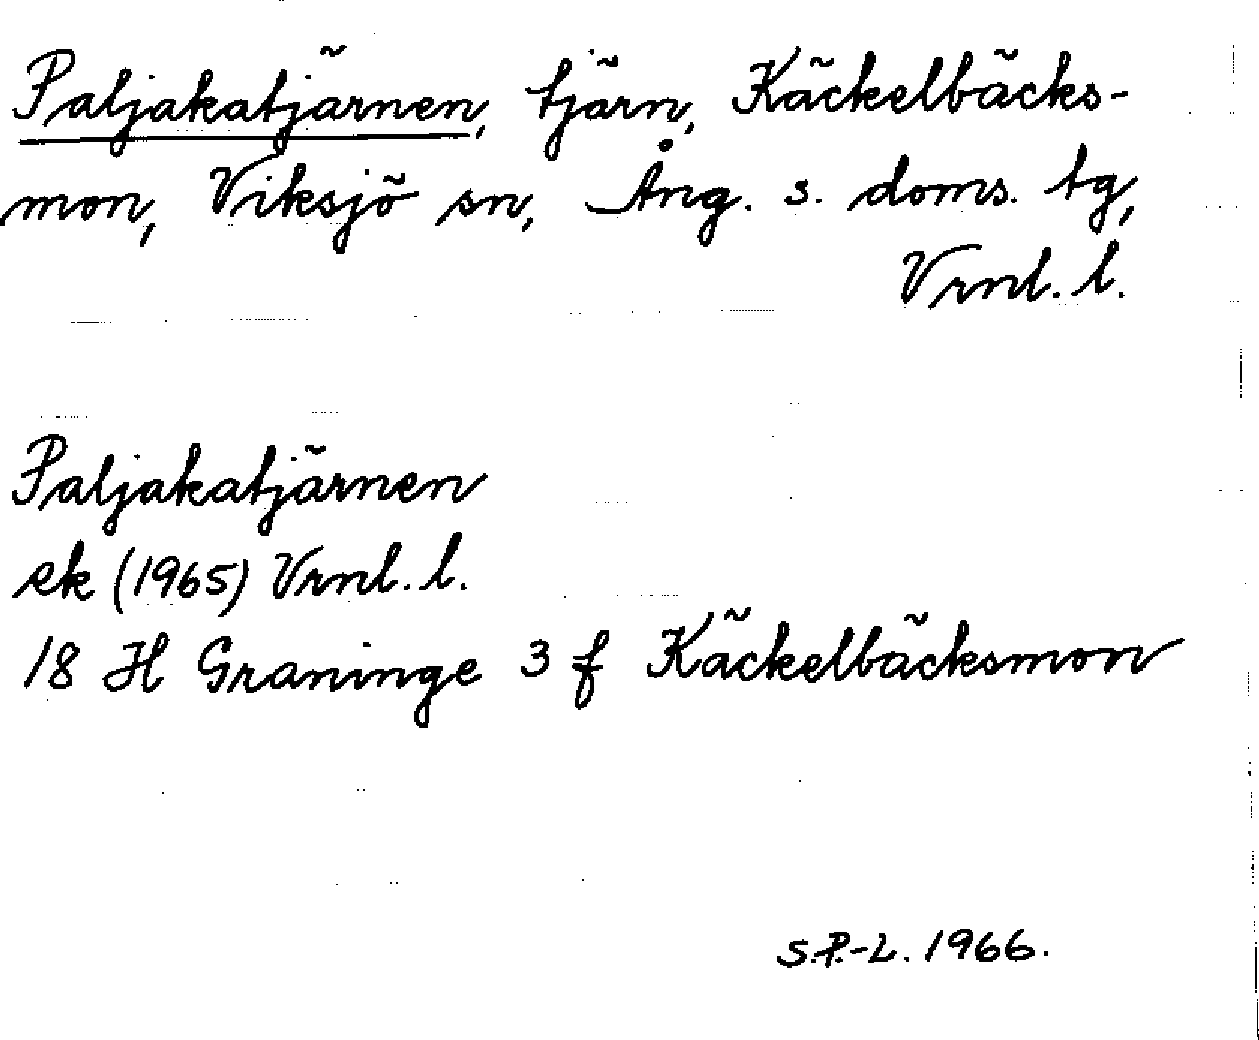 Paljakatjärnen, tjärn, Käckelbäcks-
mon, Viksjö sn, Ång. s. doms. tg,
Vrnl. l.
Paljakatjärnen
ek (1965) Vrnl. l.
18 H Graninge 3 f Käckelbäcksmon
S.P.-L. 1966.